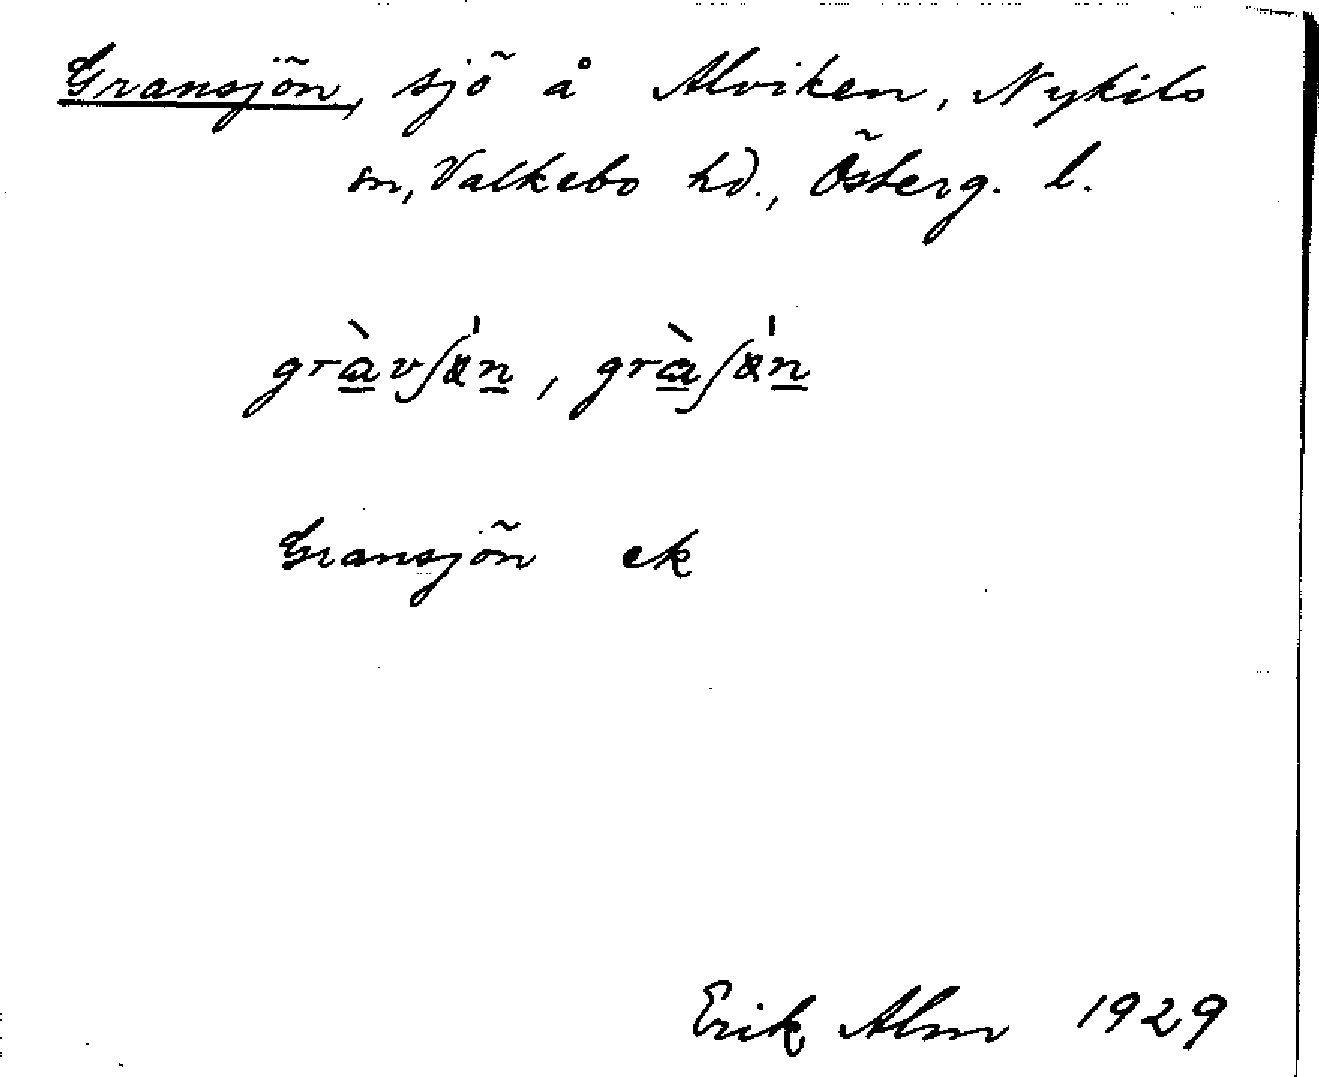 Gransjön, sjö å Alviken, Nykils
sn, Valkebo hd., Österg. l.
gràvʃä́n, gràʃä́n
Gransjön ek
Erik Alm 1929